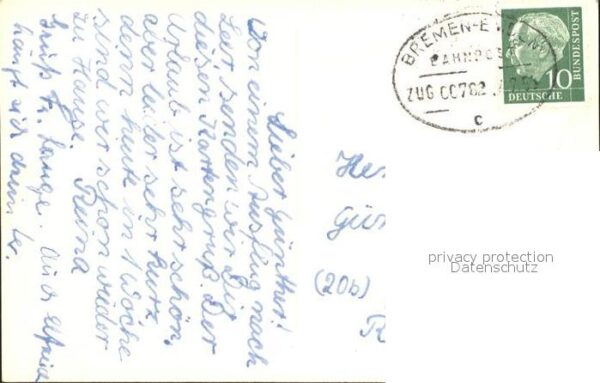 Lieber Günther!
Von einem Ausflug nach
Leer senden wir Dir
diesen Kartengruß. Der
Urlaub ist sehr schön,
aber leider sehr kurz
denn heute in 1 Woche
sind wir schon wieder
zu Hause.
Gruß Fr. Lange.
BREMEN-E
BAHNPOS
ZUG 00782
c
10
DEUTSCHE
BUNDESPOST
He
Gün
(20b)
privacy protection
Datenschutz